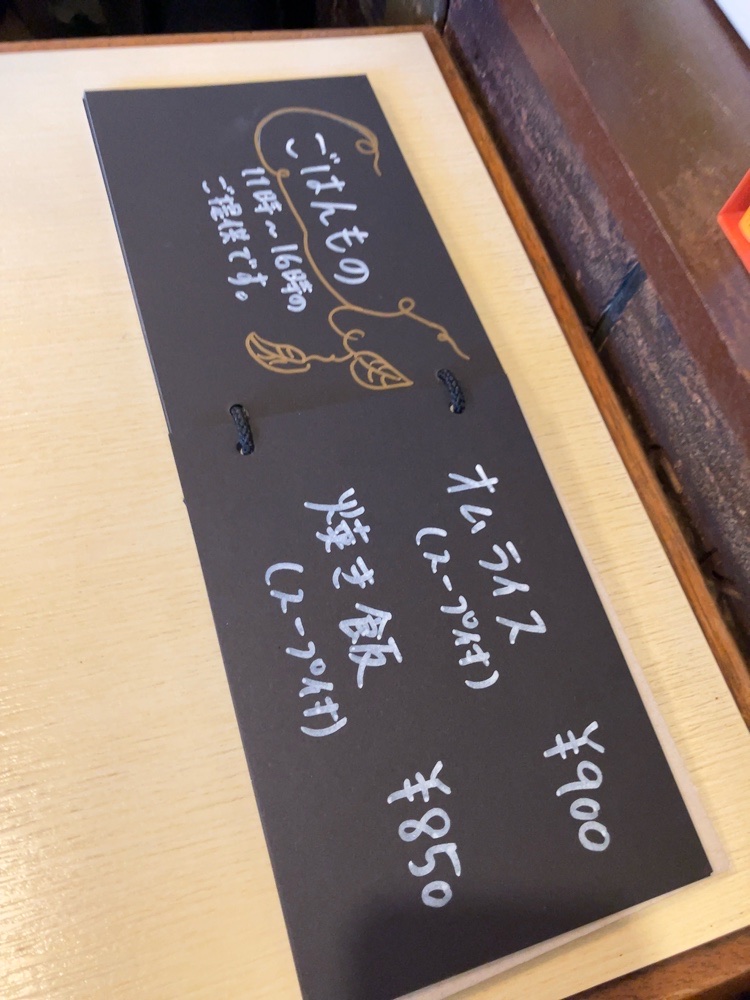 ごはんもの
11時〜16時の
ご提供です。
オムライス ¥900
(スープ付)
焼き飯 ¥850
(スープ付)